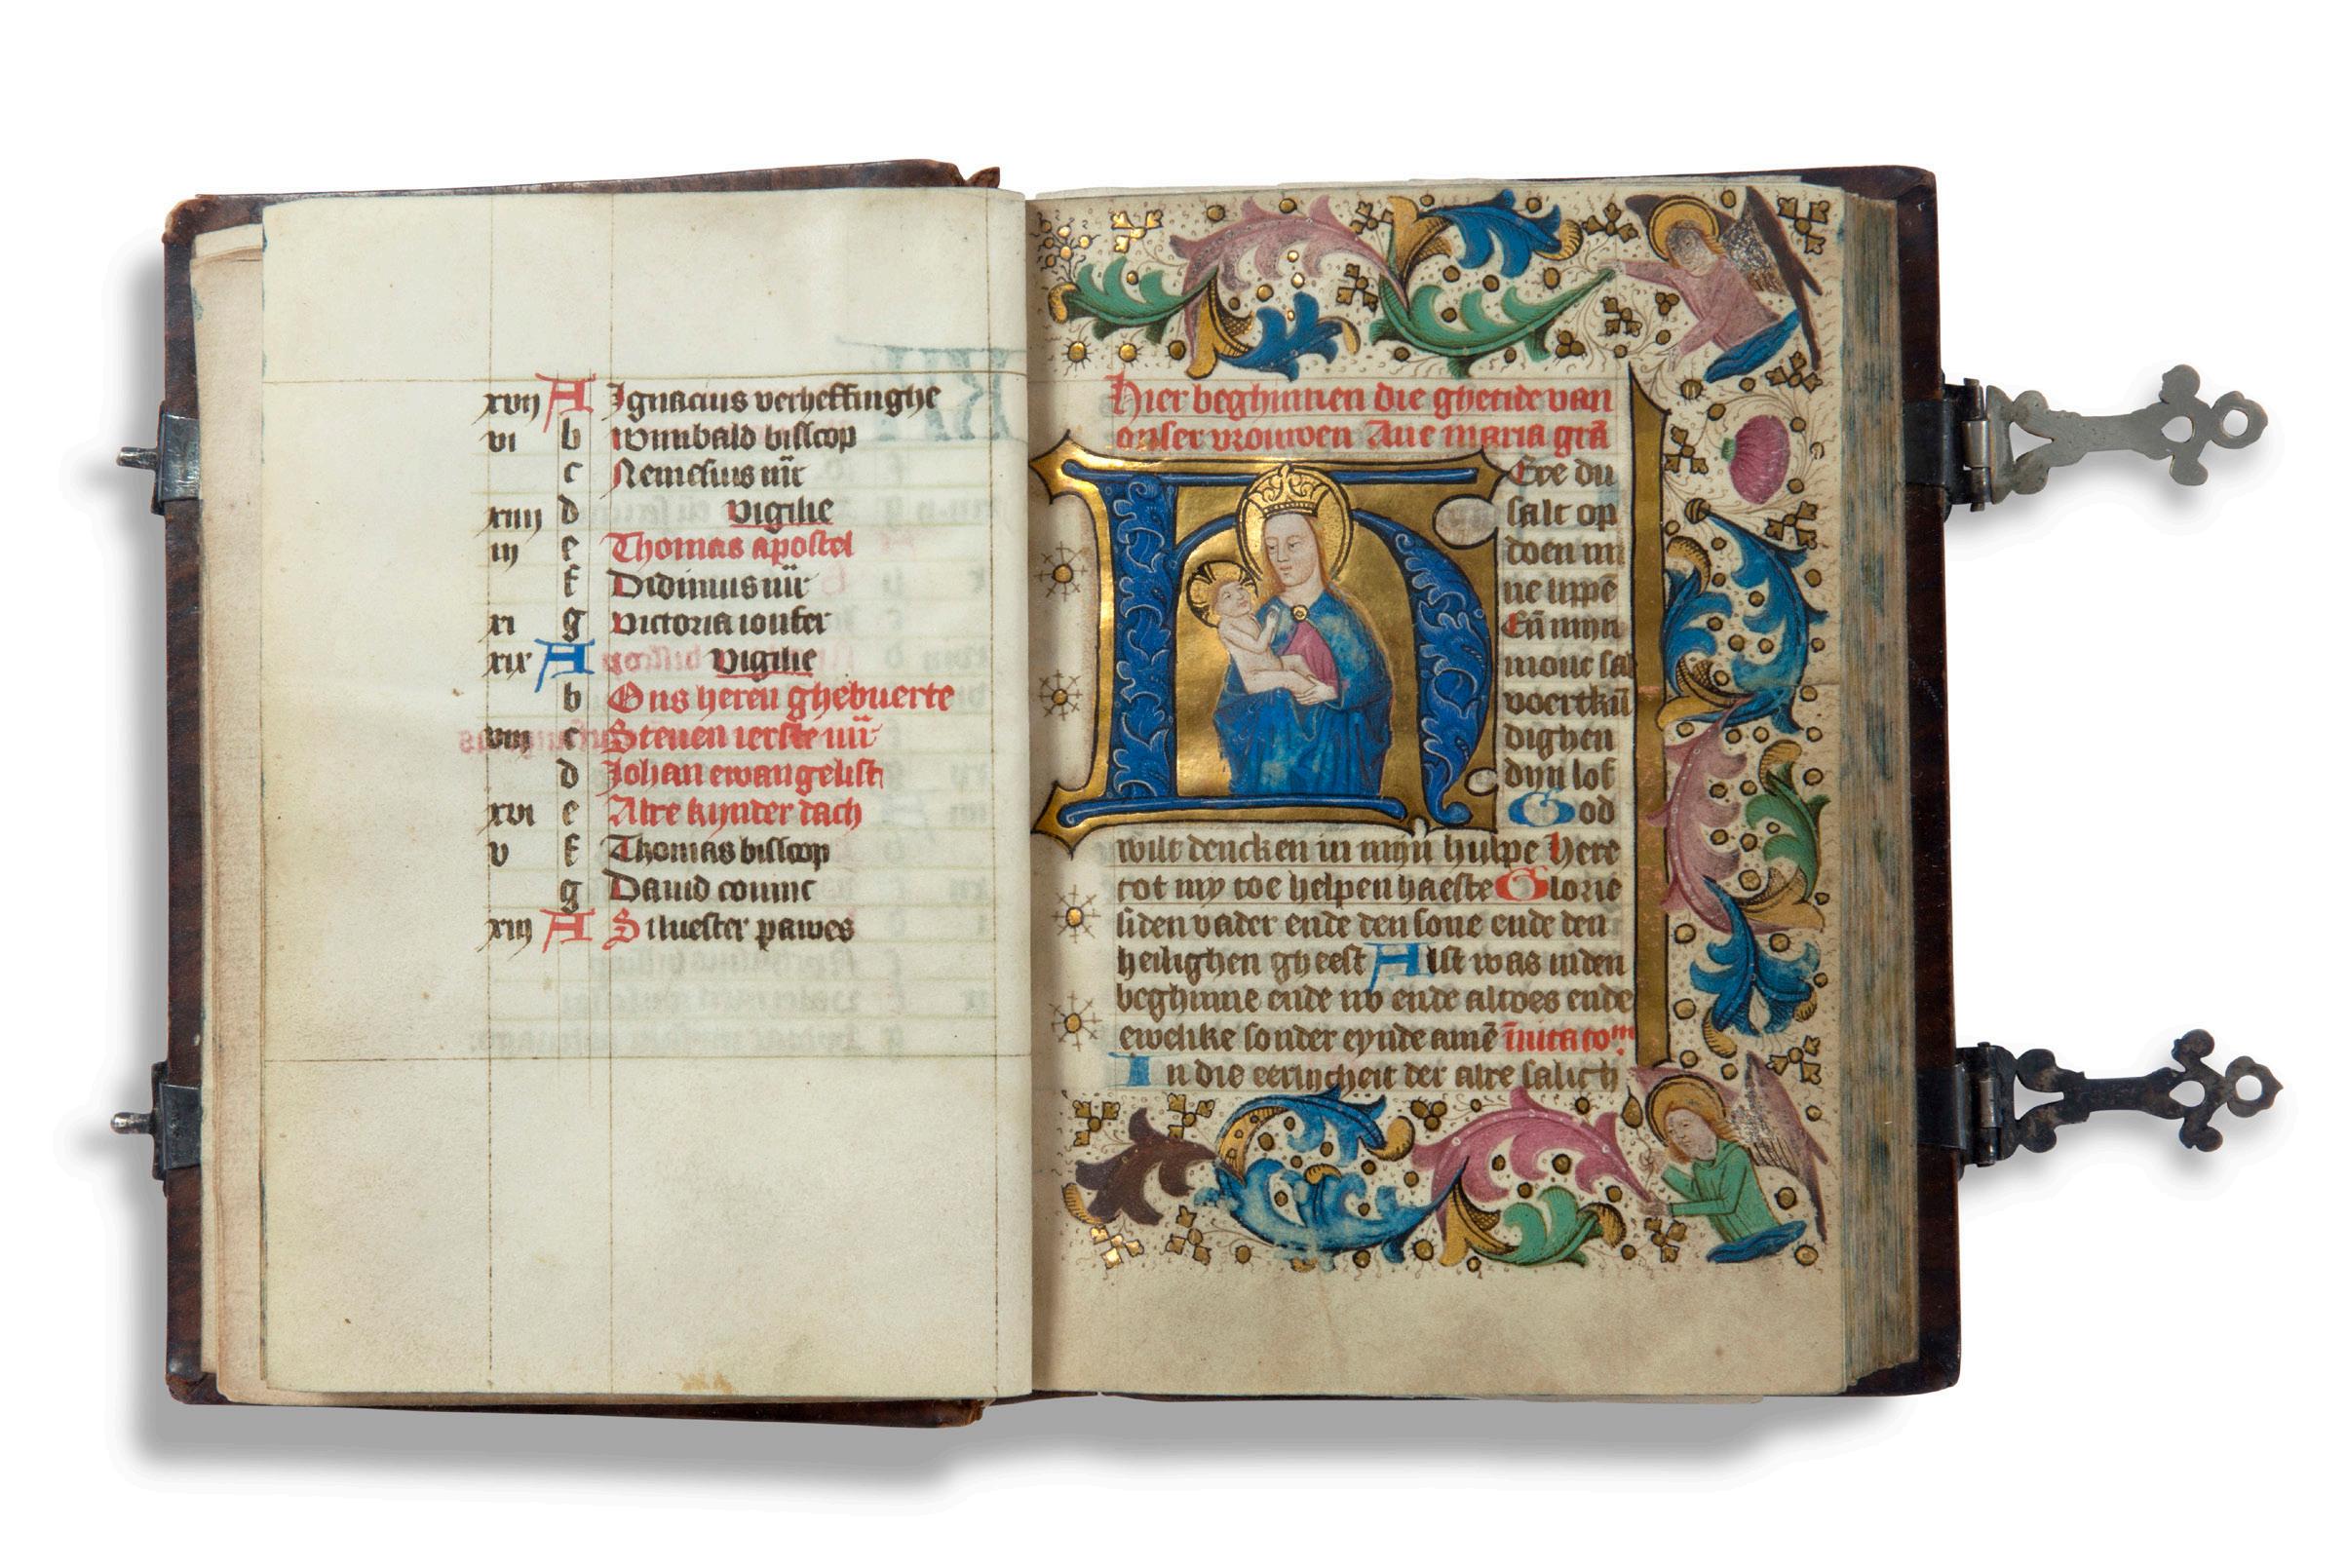 xvij A Ignacius verheffinghe
vi b wunibald bisscop
c Nemesius mr̄
xiiij d vigilie
iij e Thomas apostel
f Didimus mr̄
xi g victoria ioufer
xix A vigilie
b Ons heren ghebuerte
viij c Steuen ierste mr̄
d Johan ewangelist
xvi e Alre kynder dach
v f Thomas bisscop
g Dauid coninc
xiij A Siluester pawes
Hier beghinnen die ghetide van
onser vrouwen Aue maria grā
Ere du
salt op
doen mi
ne lippē
Eñ myn
mont sal
voertkū
dighen
dyn lof
God
wilt dencken in myn hulpe Here
tot my toe helpen haeste Glorie
si den vader ende den sone ende den
heilighen gheest Alst was inden
beghinne ende nv ende altoes ende
ewelike sonder eynde amē Īuitato.m
In die eerlycheit der alre salich